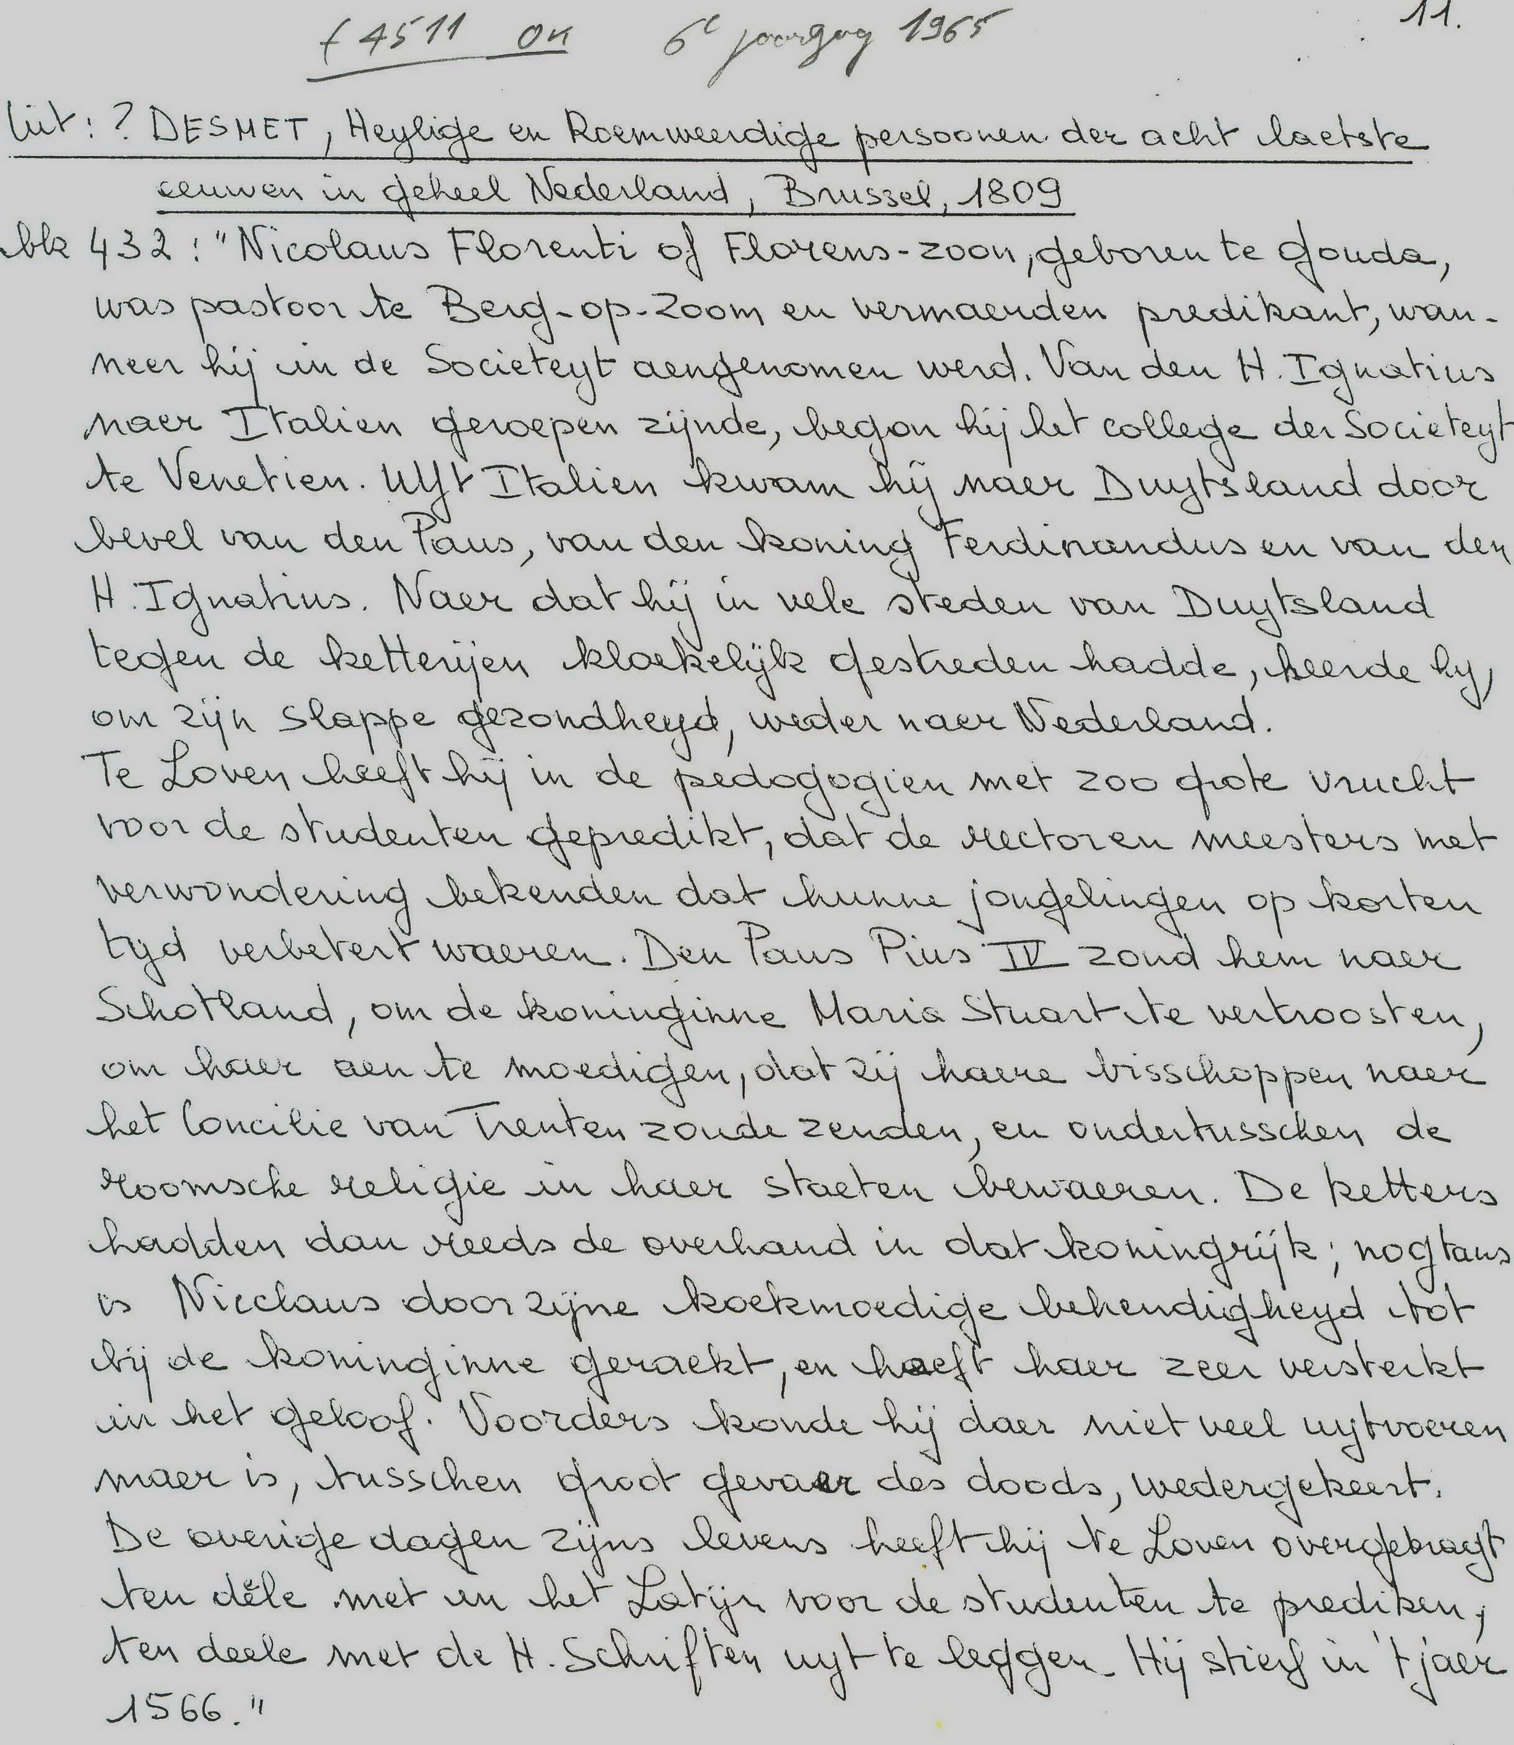 f 4511 on 6e jaargag 1965 11.
Uit : ? DESMET, Heylige en Roemweerdige persoonen der acht laetste
eeuwen in geheel Nederland, Brussel, 1809
blz 432 : "Nicolaus Florenti of Florens-zoon, geboren te Gouda,
was pastoor te Berg-op-Zoom en vermaerden predikant, wan-
neer hij in de Societeyt aengenomen werd. Van den H. Ignatius
naer Italien geroepen zijnde, begon hij het college der Societeyt
te Venetien. Uyt Italien kwam hij naer Duytsland door
bevel van den Paus, van den koning Ferdinandus en van den
H. Ignatius. Naer dat hij in vele steden van Duytsland
tegen de ketterijen kloekelijk gestreden hadde, keerde hy,
om zijn slappe gezondheyd, weder naer Nederland.
Te Loven heeft hij in de pedogogien met zoo grote vrucht
voor de studenten gepredikt, dat de rectoren meesters met
verwondering bekenden dat hunne jongelingen op korten
tyd verbetert waeren. Den Paus Pius IV zond hem naer
Schotland, om de koninginne Maria Stuart te vertroosten,
om haer aen te moedigen, dat zij haere bisschoppen naer
het Concilie van Trenten zoude zenden, en ondertusschen de
roomsche religie in haer staeten bewaeren. De ketters
hadden dan reeds de overhand in dat koningrijk ; nogtans
is Nicolaus door zijne koekmoedige behendigheyd tot
bij de koninginne geraekt, en heeft haer zeer versterkt
in het geloof. Voorders konde hij daer niet veel uytvoeren
maer is, tusschen groot gevaer des doods, wedergekeert.
De overige dagen zijns levens heeft hij te Loven overgebragt
ten dele met in het Latijn voor de studenten te prediken,
ten deele met de H. Schriften uyt te leggen. Hij stierf in 't jaer
1566."